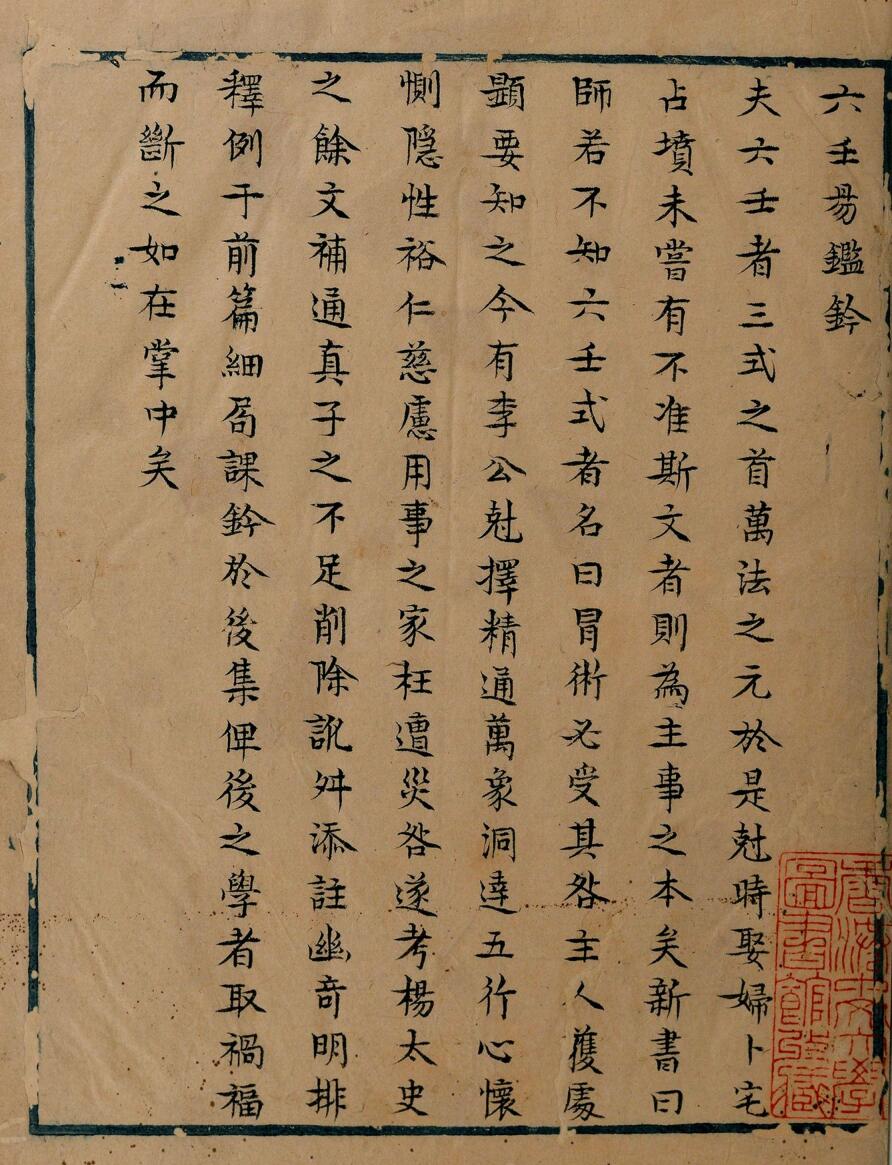 六壬昜鑑鈐
夫六壬者三式之首萬法之元於是尅時娶婦卜宅
占墳未嘗有不准斯文者則為主事之本矣新書曰
師若不知六壬式者名曰冐術必受其咎主人獲
顯要知之今有李公尅擇精通萬象洞達五行心懷
惻隠性裕仁慈慮用事之家枉遭災咎遂考楊太史
之餘文補通真子之不足削除訛舛添註幽奇明排
釋例于前篇細局課鈐於後集俾後之學者取禍福
而斷之如在掌中矣
圖書館